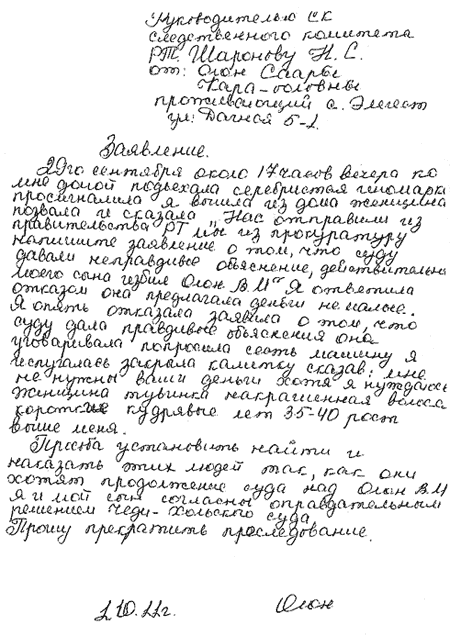 Руководителью СК
следственного комитета
РТ. Шаронову Н. С.
от: Олон Саары
Кара-ооловны
проживающий с. Элегест
ул: Дачная 5-1.
Заявление.
29го сентября около 17 часов вечера ко
мне домой подъехала серебристая иномарка
просигналила я вышла из дома женщина
позвала и сказала „Нас отправили из
правительства РТ мы из прокуратуру
напишите заявление о том, что суду
давали неправдивые объяснение, действительно
моего сына избил Олон В.М" Я ответила
отказом она предлагала деньги не малые.
Я опять отказала заявила о том, что
суду дала правдивые объяснения она
уговаривала попросила сесть машину я
испугалась закрыла калитку сказав: мне
не нужны ваши деньги хотя я нуждаюсь
женщина тувинка накрашенная волоса
короткие кудрявые лет 35-40 рост
выше меня.
Просьба установить найти и
наказать этих людей так, как они
хотят продолжение суда над Олон В.М
Я и мой сын согласны оправдательным
решением Чеди-Хольского суда
Прошу прекратить проследование.
1.10.11г. Олон